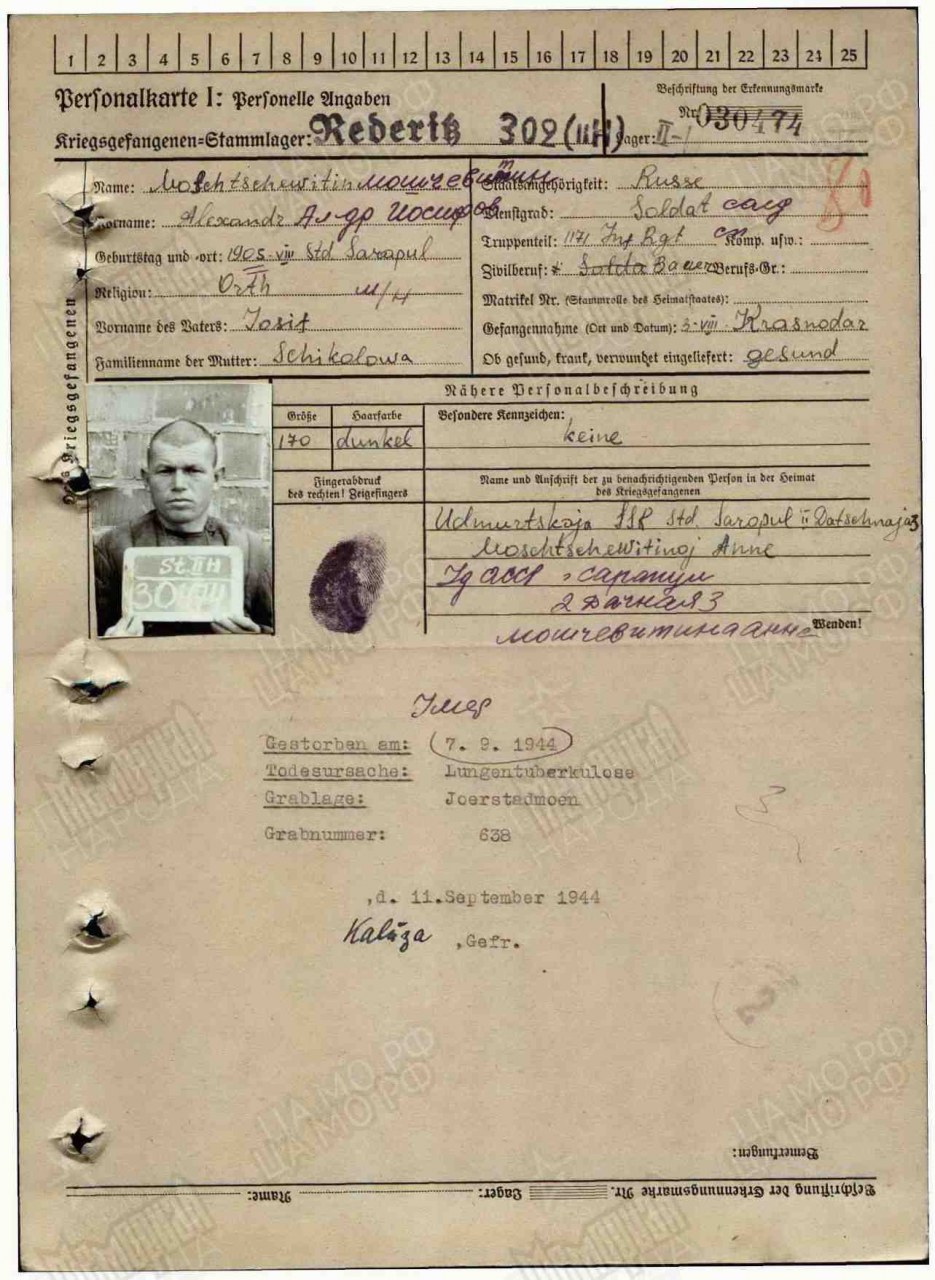 1 2 3 4 5 6 7 8 9 10 11 12 13 14 15 16 17 18 19 20 21 22 23 24 25
Personalkarte I: Personelle Angaben
Beschriftung der Erkennungsmarke
Nr. 030474
Kriegsgefangenen=Stammlager: Rederitz 302 (IIH) Lager: II-
Des Kriegsgefangenen
Name: Moschtschewitin Мошчевитин
Staatsangehörigkeit: Russe
Vorname: Alexandr Ал-др Иосифов
Dienstgrad: Soldat
Geburtstag und =ort: 1905-VIII Std Sarapul
Truppenteil: 1171 Inf Rgt Komp. usw.:
Religion: Orth
Zivilberuf: Bauer Berufs-Gr.:
Matrikel Nr. (Stammrolle des Heimatstaates):
Vorname des Vaters: Iosif
Gefangennahme (Ort und Datum): 3-VIII Krasnodar
Familienname der Mutter: Schikolowa
Ob gesund, krank, verwundet eingeliefert: gesund
Nähere Personalbeschreibung
Größe Haarfarbe Besondere Kennzeichen:
170 dunkel keine
Fingerabdruck
des rechten! Zeigefingers
Name und Anschrift der zu benachrichtigenden Person in der Heimat
des Kriegsgefangenen
Udmurtskaja SSR Std. Sarapul II Datschnaja 3
Moschtschewitinoj Anne
Уд АССР г Сарапул
2 Дачная 3
Мошчевитина Анне
Wenden!
St. II H
Умер
Gestorben am: 7. 9. 1944
Todesursache: Lungentuberkulose
Grablage: Joerstadmoen
Grabnummer: 638
,d. 11.September 1944
Kaluza ,Gefr.
Bemerkungen:
Beschriftung der Erkennungsmarke Nr. Lager: Name:
ЦАМО.РФ
ПАМЯТЬ НАРОДА